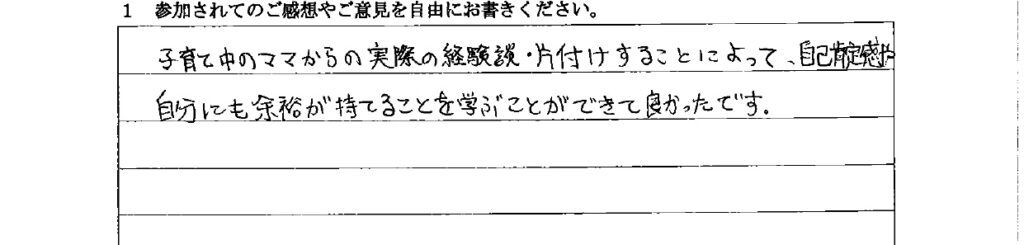 1 参加されてのご感想やご意見を自由にお書きください。
子育て中のママからの実際の経験談・片付けすることによって、自己肯定感や
自分にも余裕が持てることを学ぶことができて良かったです。